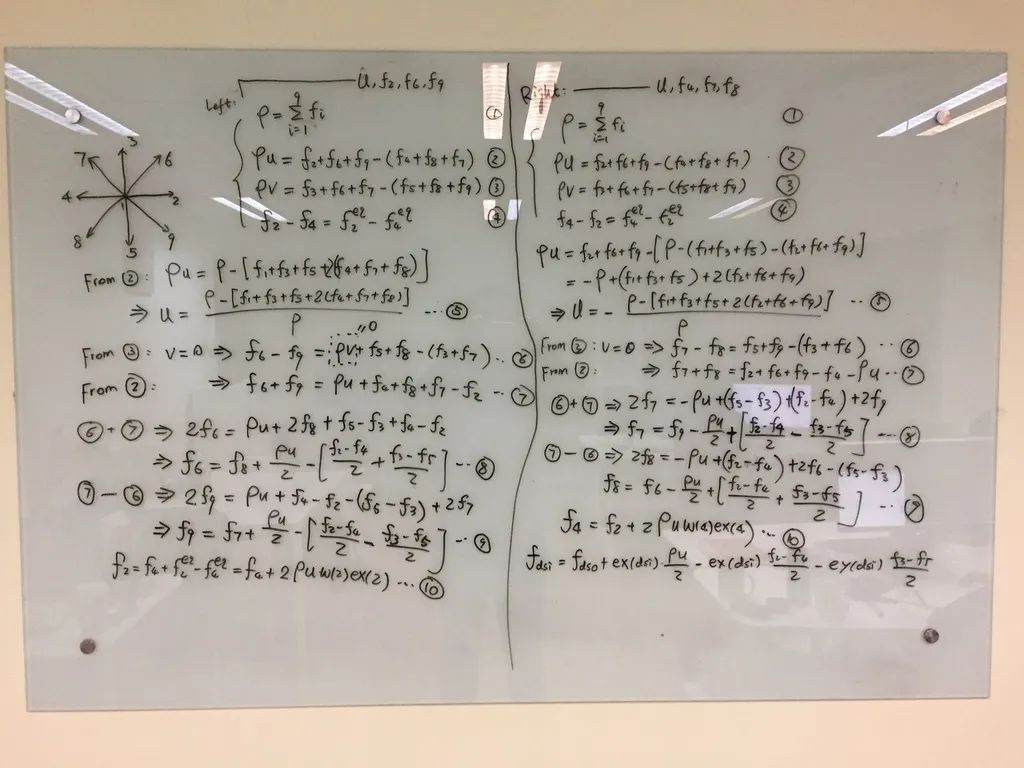 Left: U, f2, f6, f9
ρ = Σ_{i=1}^{9} fi ①
ρu = f2+f6+f9-(f4+f8+f7) ②
ρv = f3+f6+f7-(f5+f8+f9) ③
f2 - f4 = f2^eq - f4^eq ④
3
7 6
4 1 2
8 9
5
From ②: ρu = ρ-[f1+f3+f5+2(f4+f7+f8)]
⇒ u = (ρ-[f1+f3+f5+2(f4+f7+f8)])/ρ ... ⑤
From ③: v=0 ⇒ f6 - f9 = ρv + f5+f8-(f3+f7) .. ⑥
"0
From ②: ⇒ f6+f9 = ρu+f4+f8+f7-f2 .. ⑦
⑥+⑦ ⇒ 2f6 = ρu+2f8+f5-f3+f4-f2
⇒ f6 = f8 + ρu/2 - [(f2-f4)/2 + (f3-f5)/2] ... ⑧
⑦-⑥ ⇒ 2f9 = ρu+f4-f2-(f5-f3)+2f7
⇒ f9 = f7 + ρu/2 - [(f2-f4)/2 - (f3-f5)/2] ... ⑨
f2 = f4+f2^eq-f4^eq = f4+2ρu w(2)ex(2) ... ⑩
Right: U, f4, f7, f8
ρ = Σ_{i=1}^{9} fi ①
ρu = f2+f6+f9-(f4+f8+f7) ②
ρv = f3+f6+f7-(f5+f8+f9) ③
f4-f2 = f4^eq - f2^eq ④
ρu = f2+f6+f9-[ρ-(f1+f3+f5)-(f2+f6+f9)]
= -ρ+(f1+f3+f5)+2(f2+f6+f9)
⇒ u = - (ρ-[f1+f3+f5+2(f2+f6+f9)])/ρ ... ⑤
From ③: v=0 ⇒ f7 - f8 = f5+f9-(f3+f6) .. ⑥
From ②: ⇒ f7+f8 = f2+f6+f9-f4-ρu .. ⑦
⑥+⑦ ⇒ 2f7 = -ρu+(f5-f3)+(f2-f4)+2f9
⇒ f7 = f9 - ρu/2 + [(f2-f4)/2 - (f3-f5)/2] ... ⑧
⑦-⑥ ⇒ 2f8 = -ρu+(f2-f4)+2f6-(f5-f3)
f8 = f6 - ρu/2 + [(f2-f4)/2 + (f3-f5)/2] ... ⑨
f4 = f2+2ρu w(4)ex(4) ... ⑩
fdsi = fdso + ex(dsi)·ρu/2 - ex(dsi) (f2-f4)/2 - ey(dsi) (f3-f5)/2